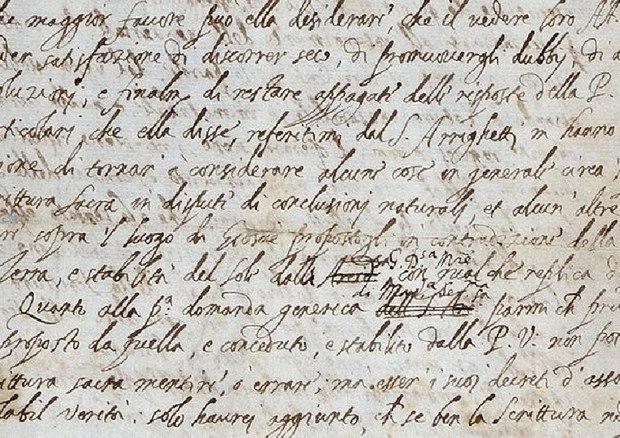 maggior favore puo ella desiderare, che il vedere loro Al-
der satisfazione di discorrer seco, di promuovergli dubbij, di a
oluzioni, e finalm. di restare appagati delle risposte della P.
rticolari che ella disse, referitimi dal S. Arrighetti m hanno
ione di tornare à considerare alcune cose in generale circa
rittura sacra in dispute di conclusioni naturali, et alcun' altre
re sopra il luogo di Giosue propostogli in contradizione della
Terra, e stabilità del Sole dalla Gran D.sa Mre con qualche replica d
Quanto alla p.a domanda generica di Mad.a Ser.ma parmi ch pru
proposto da quella, e conceduto, e stabilito dalla P. V. non po
ittura sacra mentire ò errare, ma esser i suoi decreti d'asso
labil verità. solo haurei aggiunto, ch se ben la Scrittura no